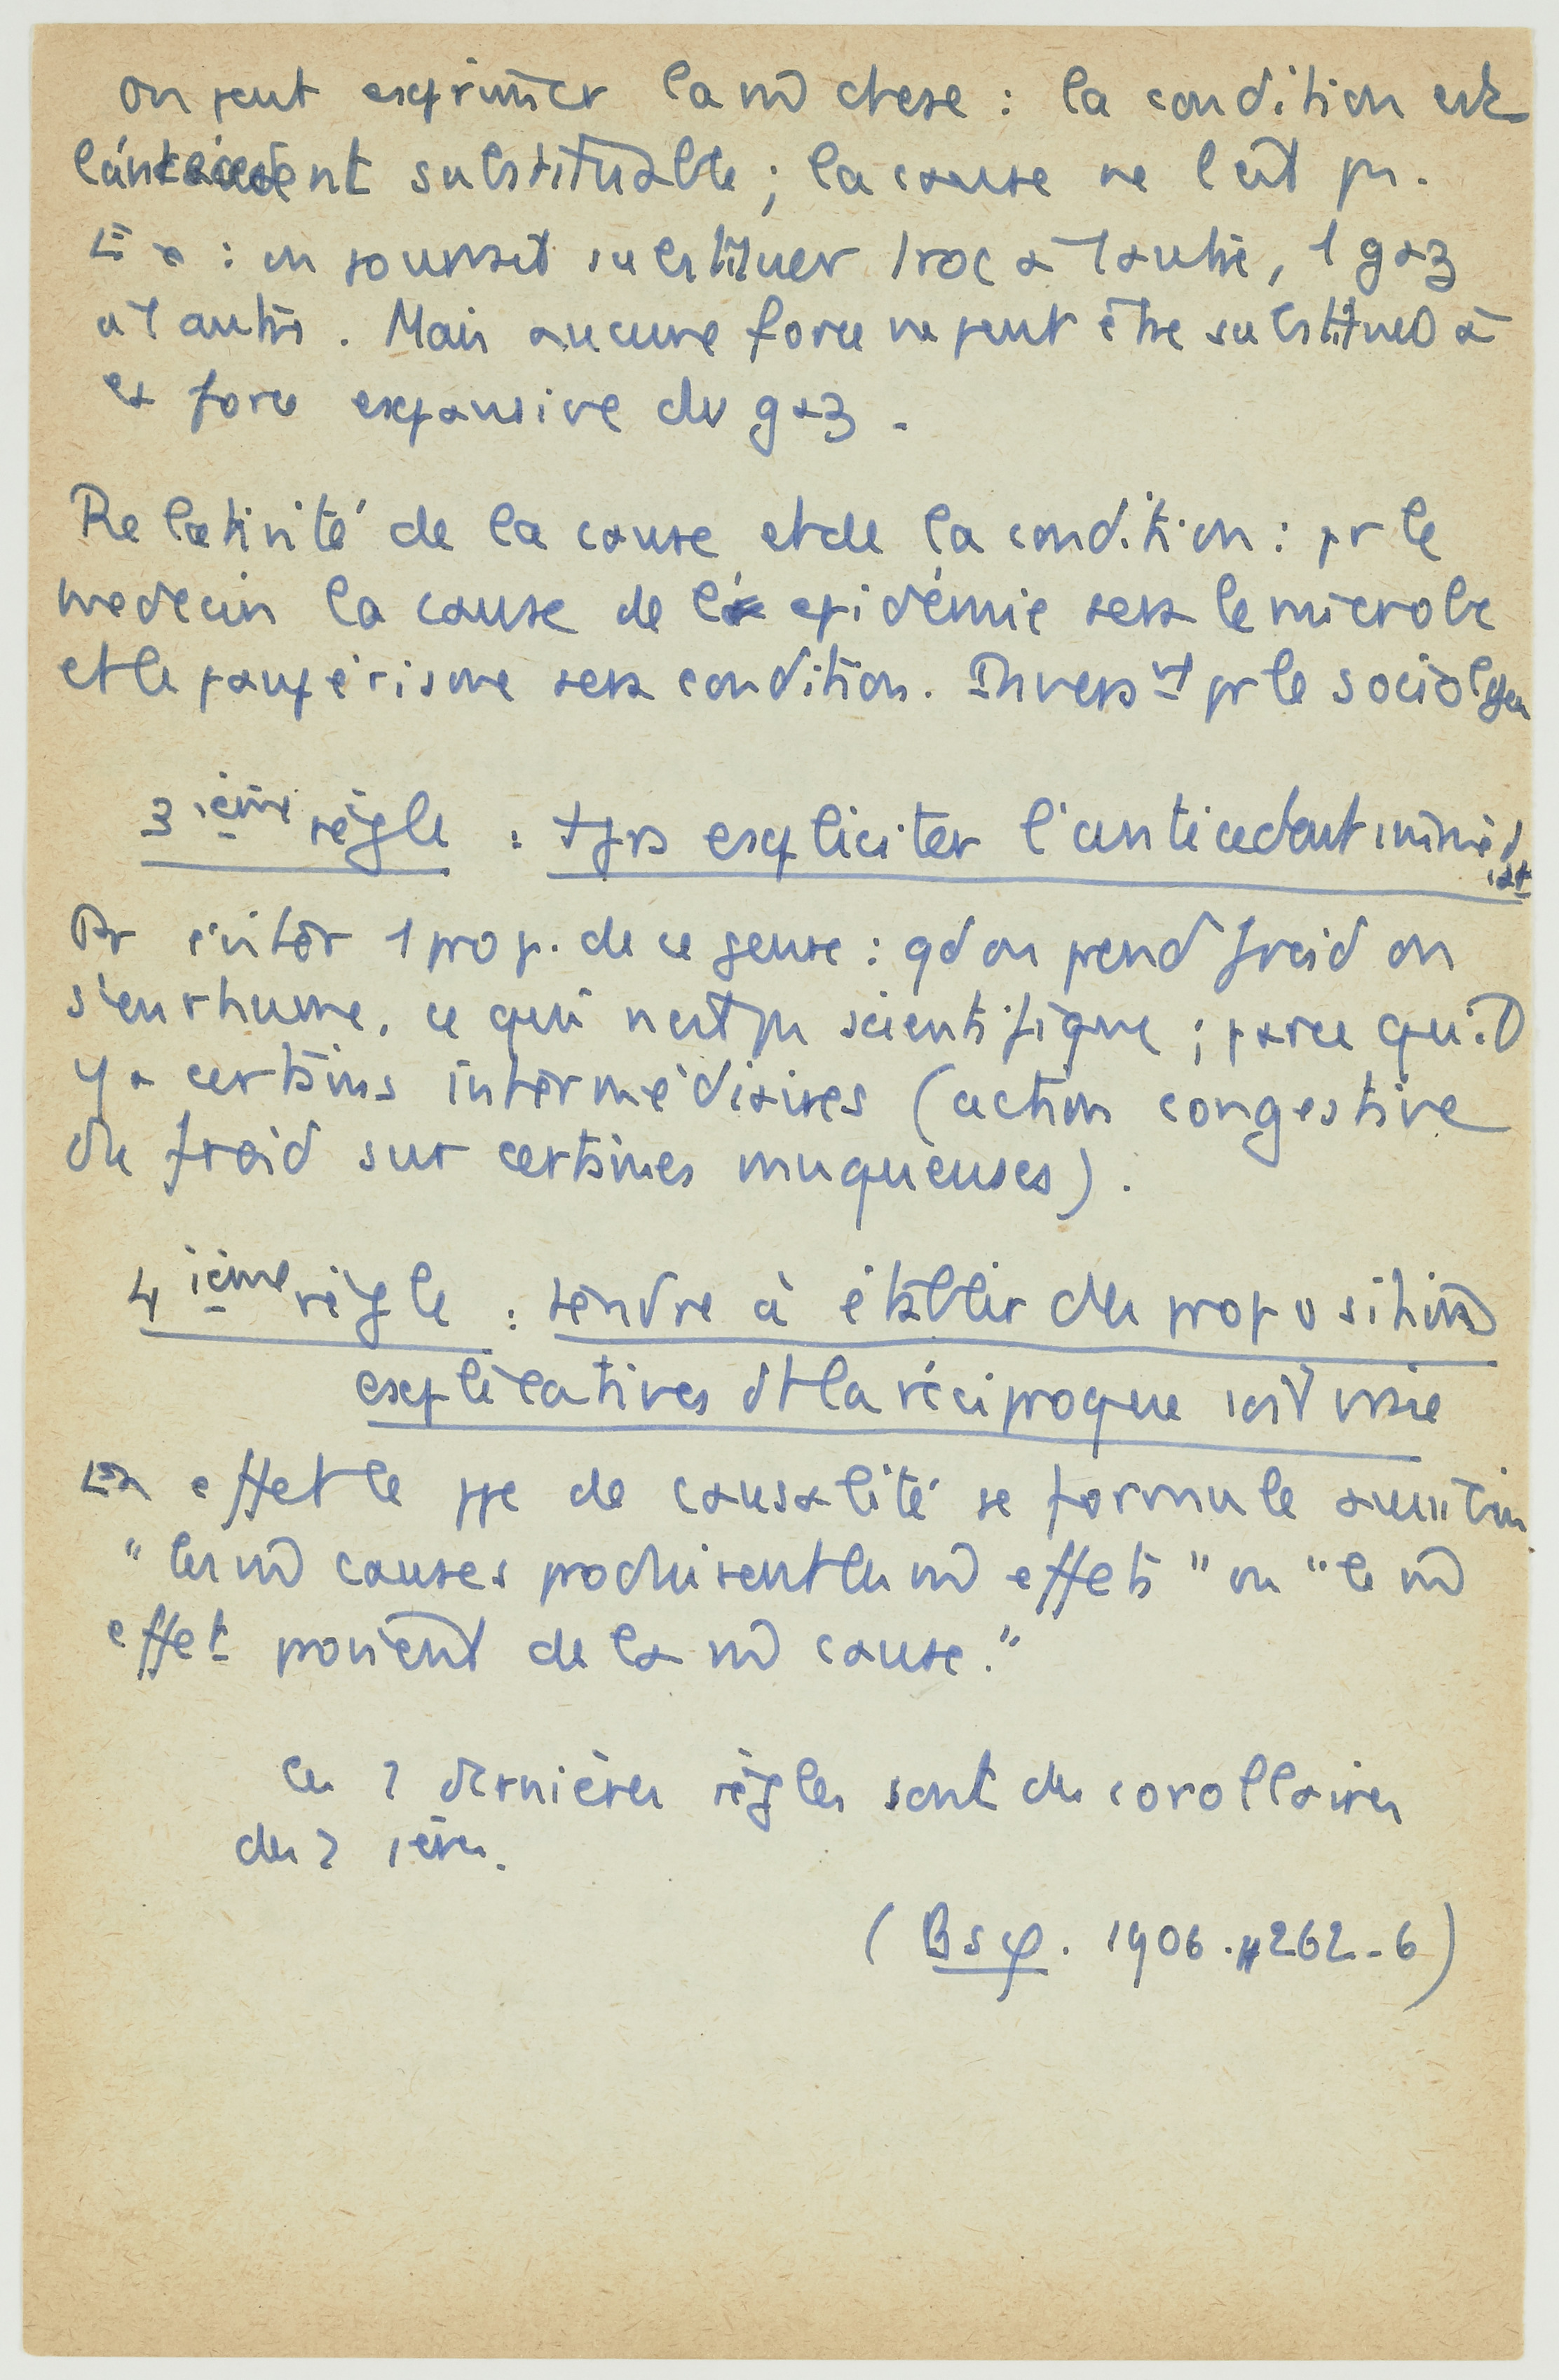 on peut exprimer la m̂ chose : la condition est
l'antécédent substituable ; la cause ne l'est pas.
Ex : on pourrait substituer 1 roc à 1 autre, 1 gaz
à 1 autre. Mais aucune force ne peut être substituée à
la force expansive du gaz.
Relativité de la cause et de la condition : pr le
médecin la cause de l' épidémie sera le microbe
et le paupérisme sera condition. Inverst pr le sociologue
3ième règle : tjrs expliciter l'antécédent immédiat
Pr éviter 1 prop. de ce genre : qd on prend froid on
s'enrhume. ce qui n'est pas scientifique ; parce qu'il
y a certains intermédiaires (action congestive
du froid sur certaines muqueuses).
4ième règle : tendre à établir des propositions
explicatives dt la réciproque soit vraie
En effet le ppe de causalité se formule aussi bien
"les m̂ causes produisent les m̂ effets" ou "le m̂
effet provient de la m̂ cause."
Ces 2 dernières règles sont des corollaires
des 2 1ères.
( Bsφ. 1906. 262-6)